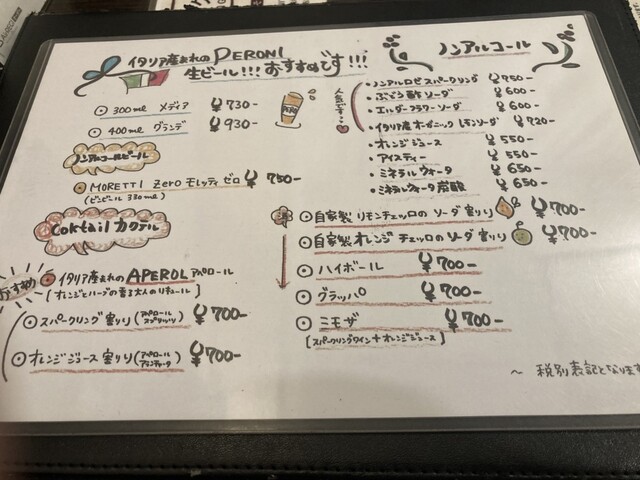 イタリア産まれのPERONI
生ビール!!! おすすめです!!!
300ml メディア ¥730-
400ml グランデ ¥930-
ノンアルコールビール
MORETTI Zero モレッティ ゼロ ¥750-
(ビンビール 330ml)
Coktail カクテル
おすすめ
イタリア産まれのAPEROL アペロール
[オレンジとハーブの香る大人のリキュール]
スパークリング割り(アペロールスプリッツ) ¥700-
オレンジジュース割り(アペロール) ¥700-
ノンアルコール
人気です
・ノンアルロゼスパークリング ¥750-
・ぶどう酢ソーダ ¥600-
・エルダーフラワーソーダ ¥600-
・イタリア産オーガニックレモンソーダ ¥720-
・オレンジジュース ¥550-
・アイスティー ¥550-
・ミネラルウォータ ¥650-
・ミネラルウォータ炭酸 ¥650-
自家製リモンチェッロのソーダ割り ¥700-
自家製オレンジチェッロのソーダ割り ¥700-
ハイボール ¥700-
グラッパ ¥700-
ミモザ ¥700-
[スパークリングワイン+オレンジジュース]
～ 税別表記となります